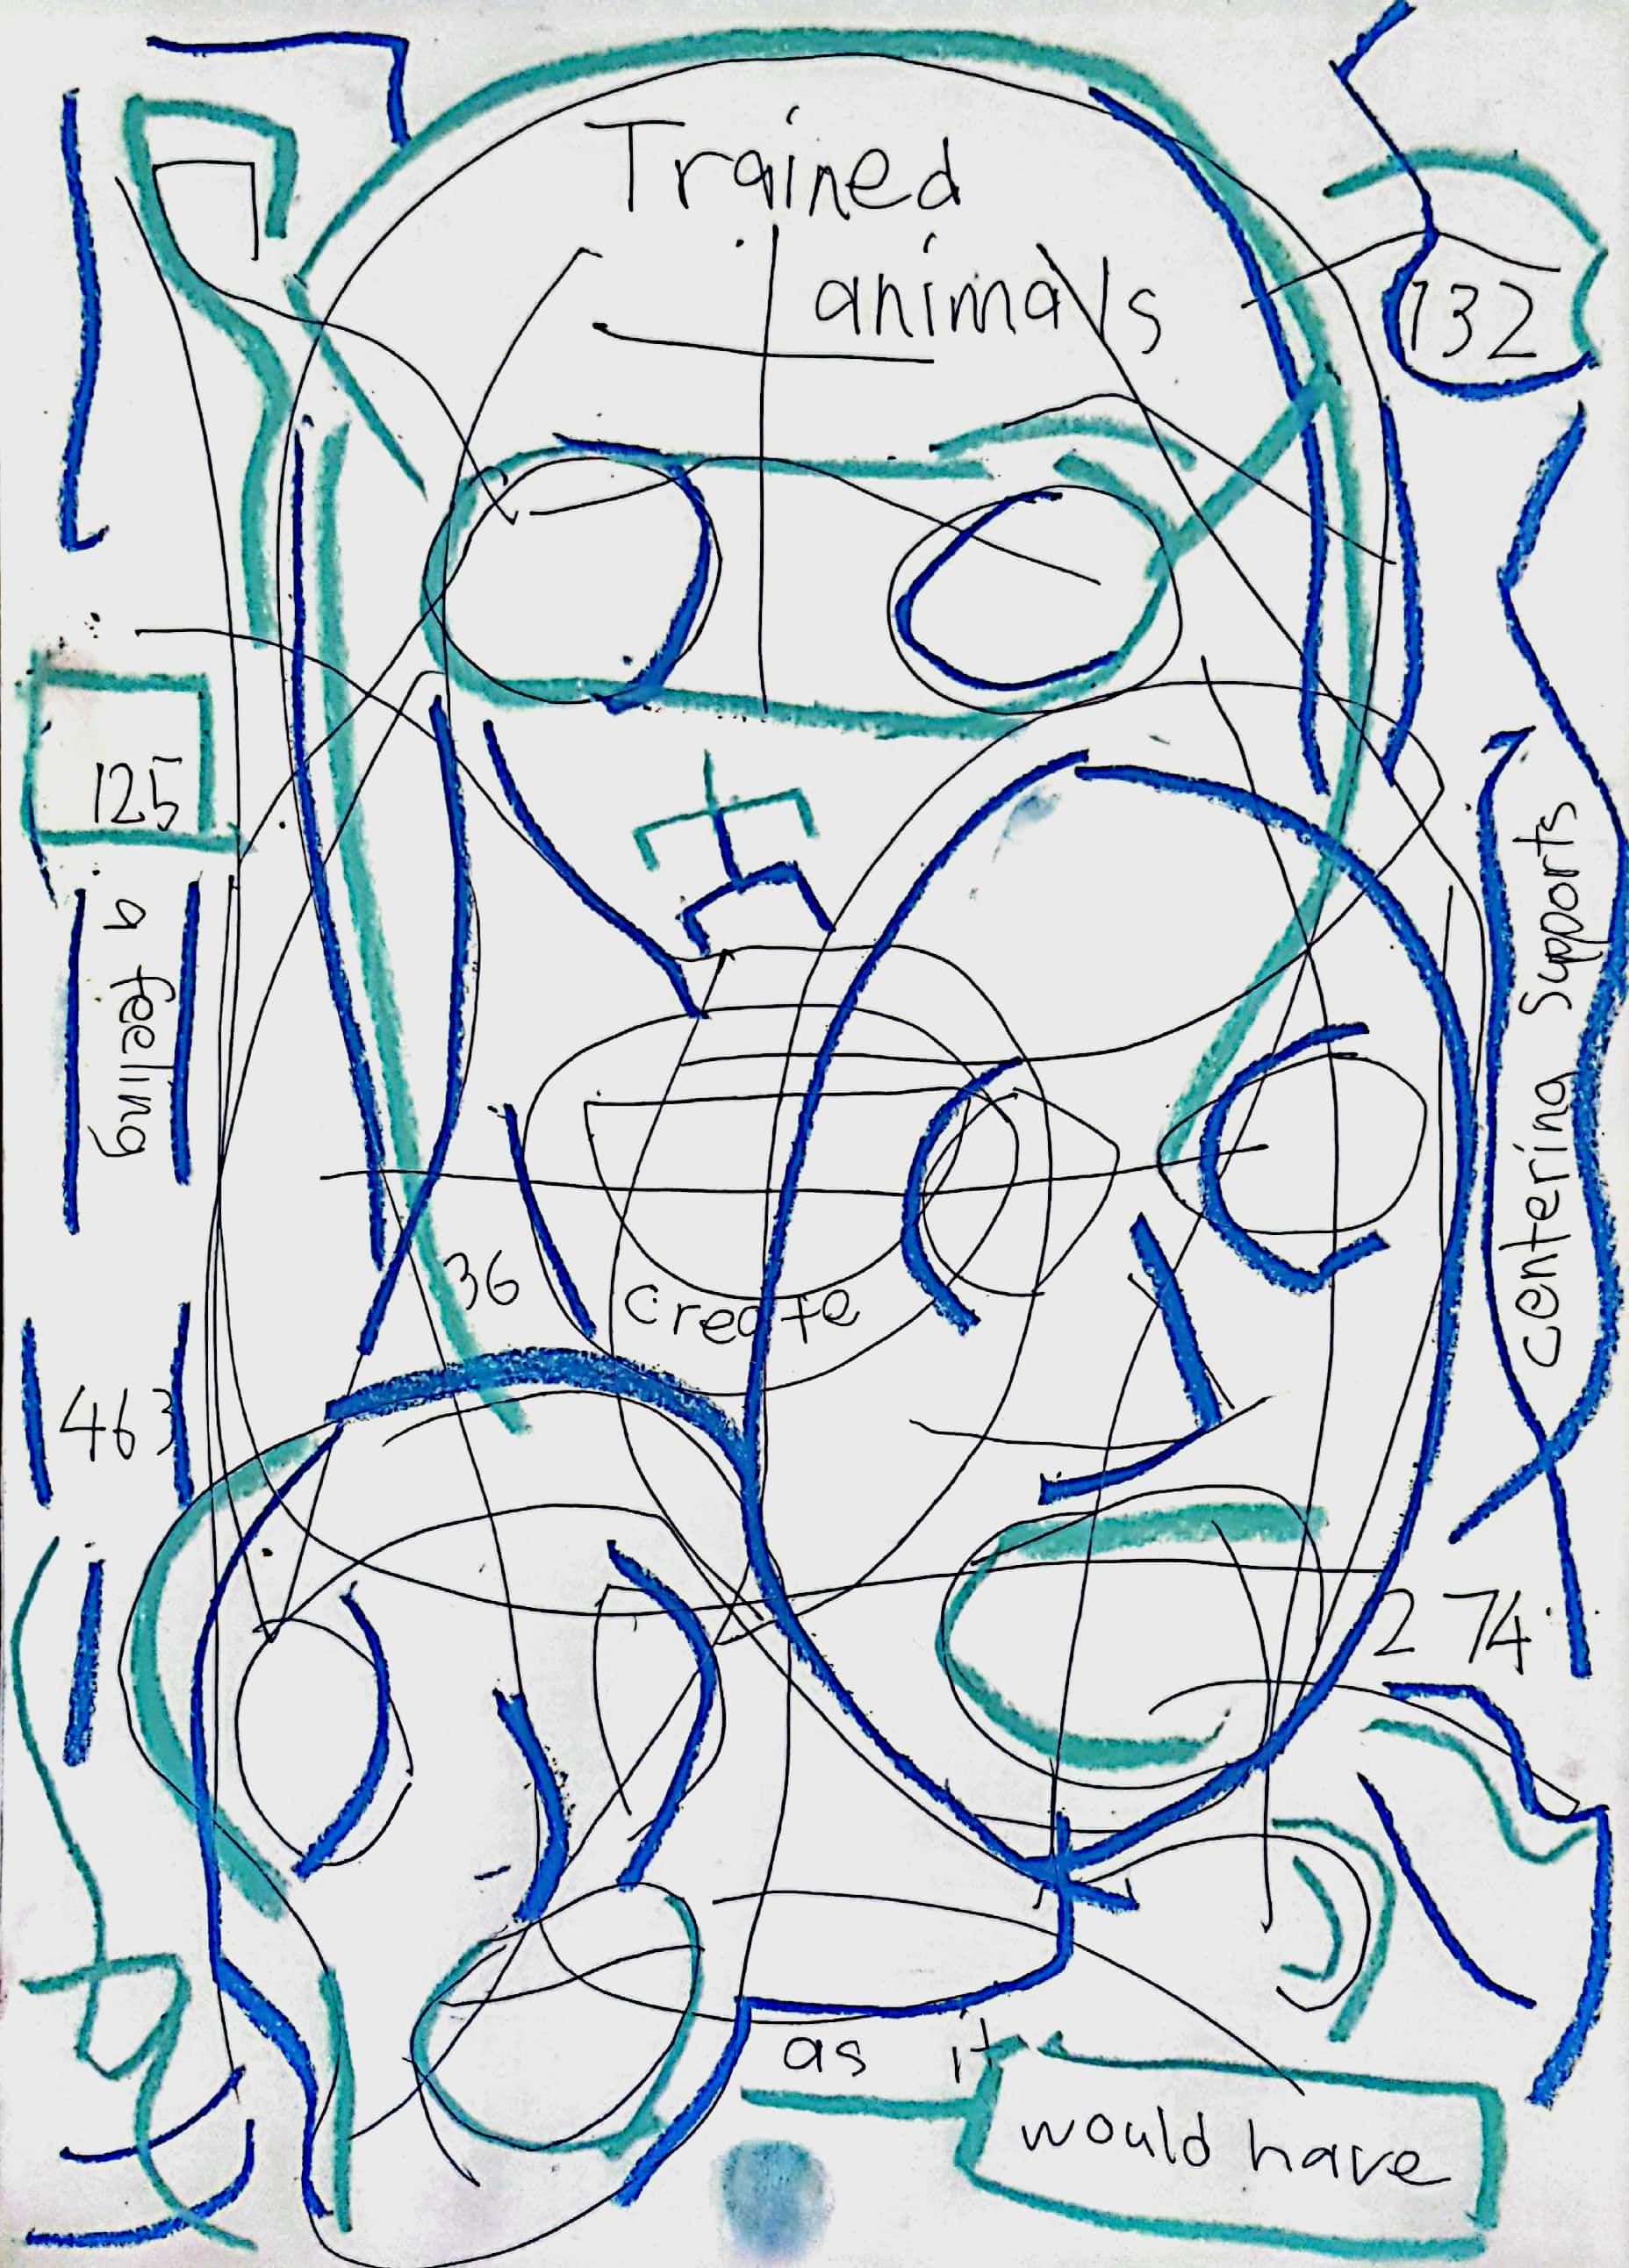 Trained
animals
132
125
a feeling
centering supports
36
create
463
274
as it
would have